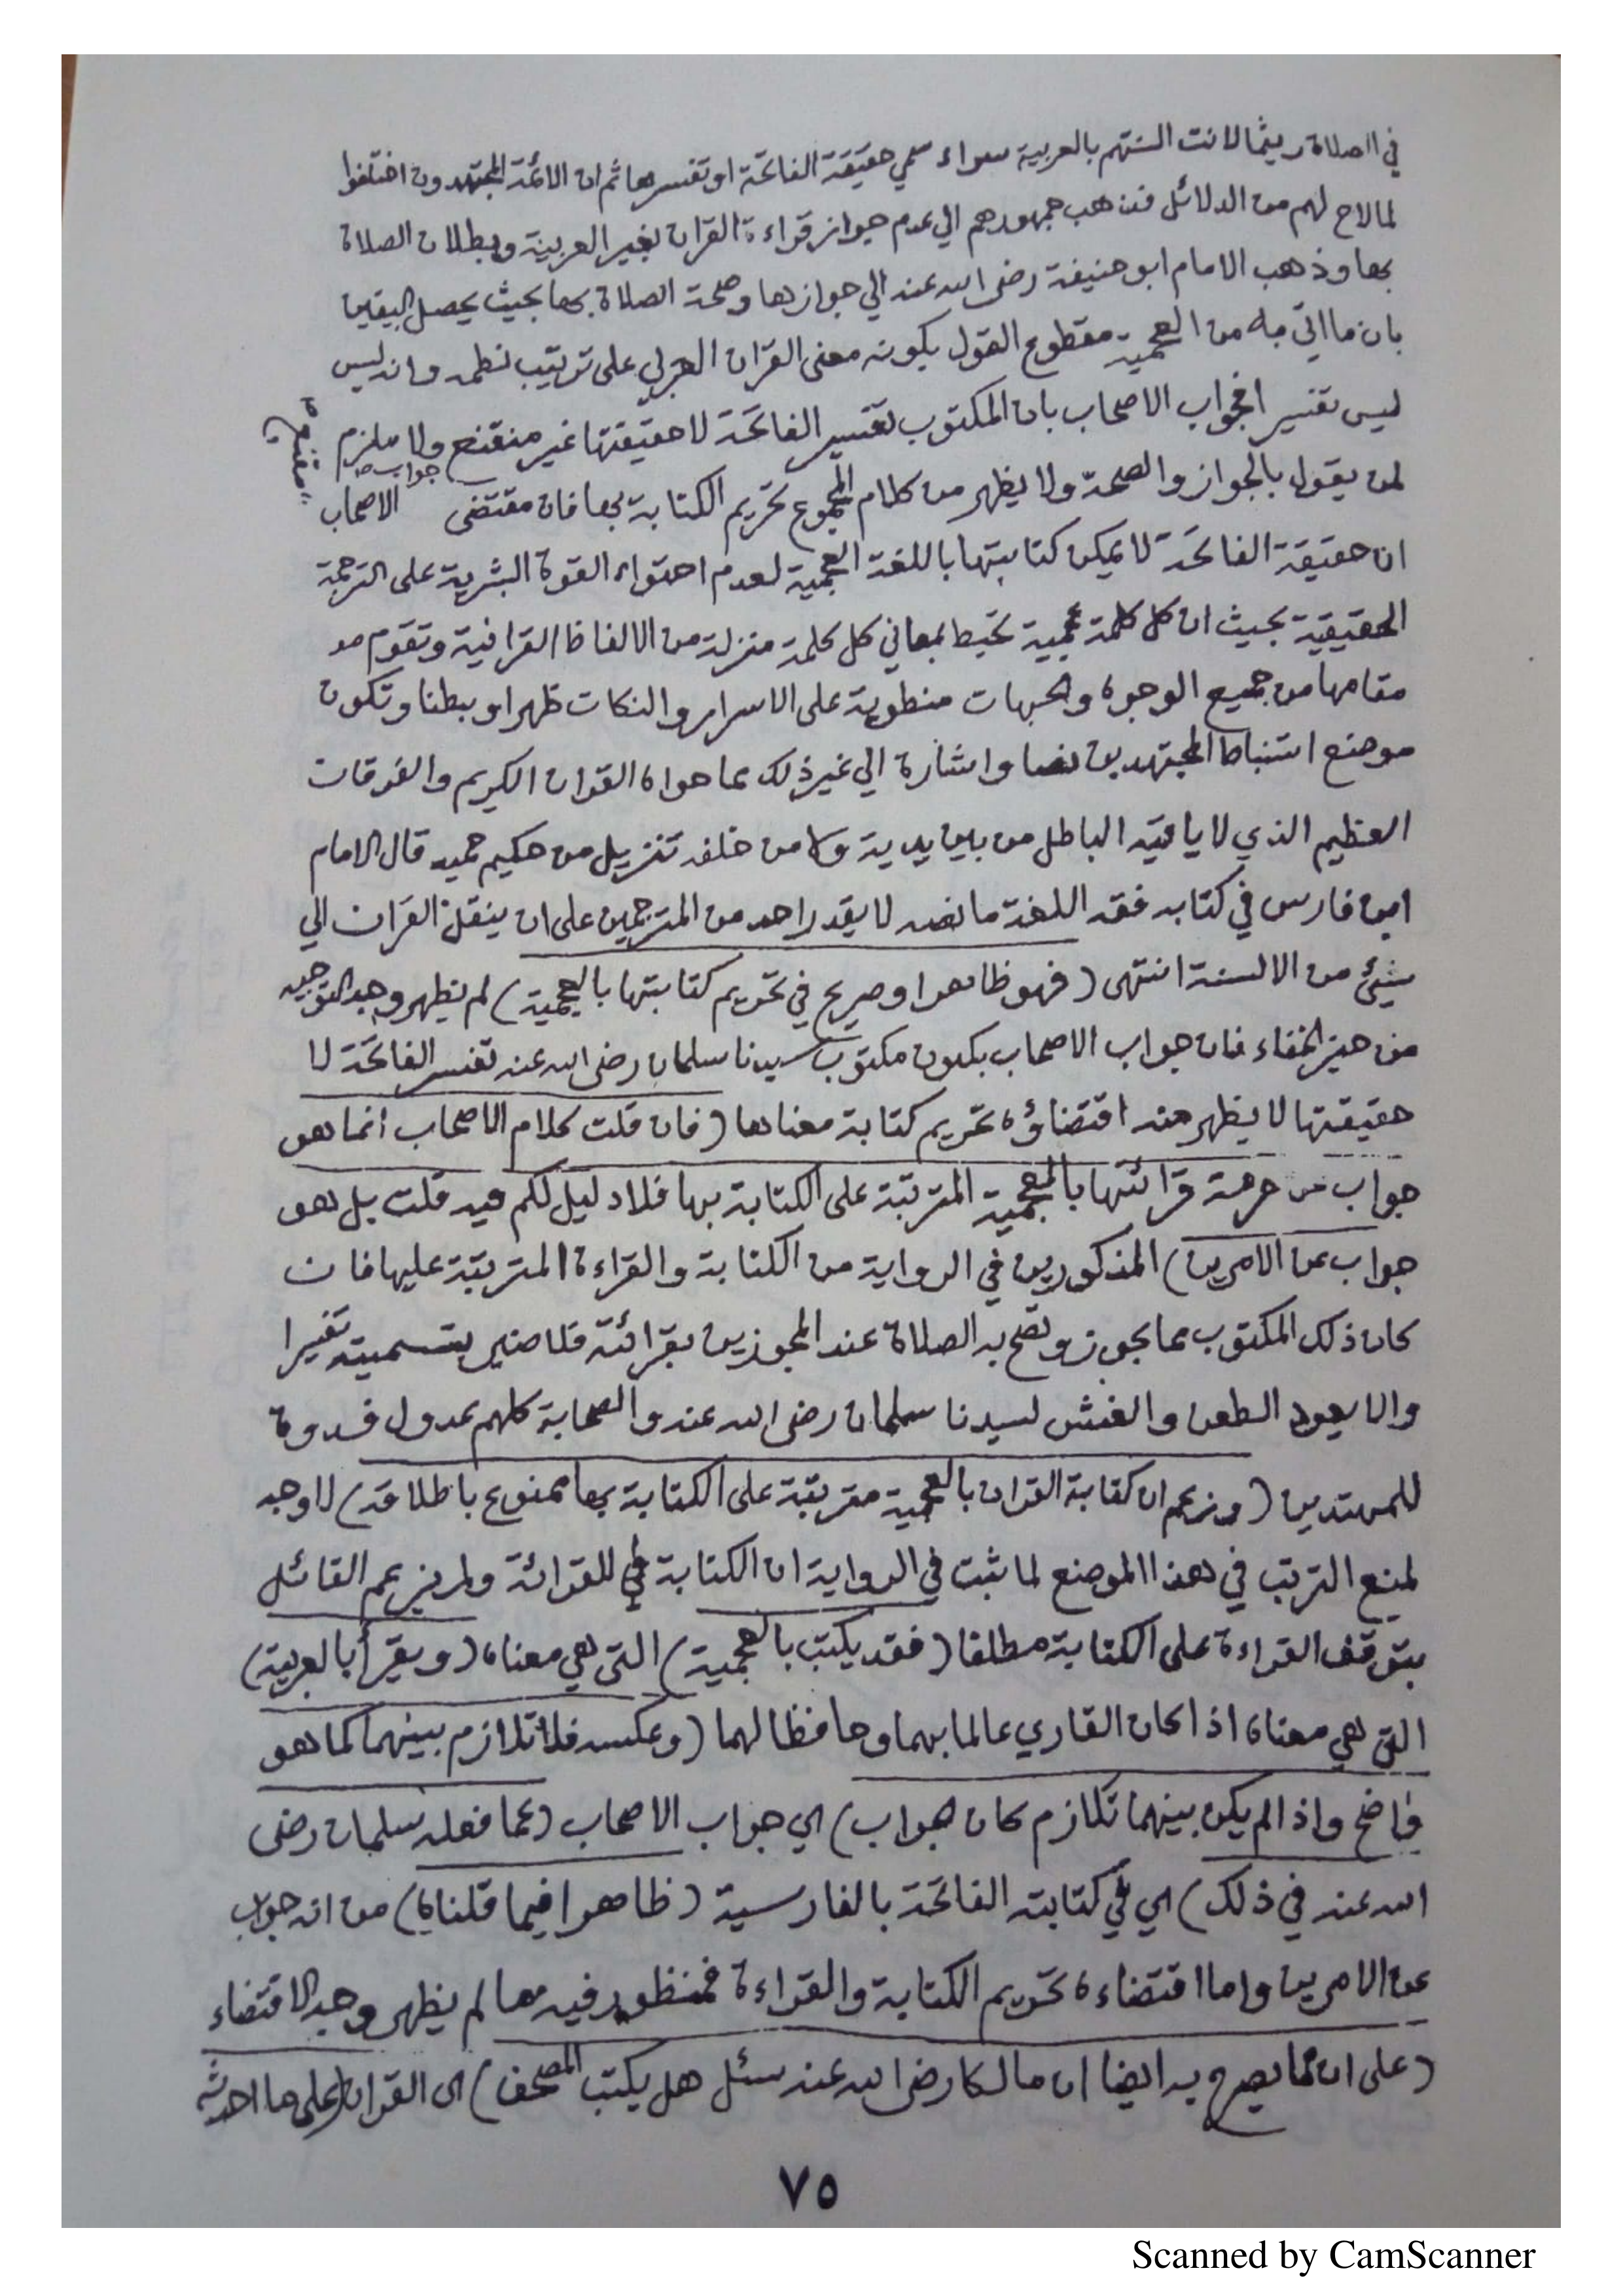 في الصلاة ريثما لانت السنتهم بالعربية سواء سمي حقيقة الفاتحة او تفسيرها ثم ان الائمة المجتهدون اختلفوا
لما لاح لهم من الدلائل فذهب جمهورهم الي عدم جواز قراءة القران بغير العربية وبطلان الصلاة
بها وذهب الامام ابو حنيفة رضي الله عنه الي جوازها وصحة الصلاة بها بحيث يحصل اليقين
بان ما اتي به من العجمية مقطوع القول بكونه معنى القران العربي على ترتيب نظمه وانه ليس
ليس تفسيرا فجواب الاصحاب بان المكتوب تفسير الفاتحة لا حقيقتها غير منقنع ولا ملزم
مقنع
لمن يقول بالجواز والصحة ولا يظهر من كلام المجموع تحريم الكتابة بها فان مقتضى جواب الاصحاب
ان حقيقة الفاتحة لا يمكن كتابتها باللغة العجمية لعدم احتواء القوة البشرية على الترجمة
الحقيقية بحيث ان كل كلمة عجمية تحيط بمعاني كل كلمة منزلة من الالفاظ القرانية وتقوم
مقامها من جميع الوجوه والجهات منطوية على الاسرار والنكات ظهرا وبطنا وتكون
موضع استنباط المجتهدين نصا واشارة الي غير ذلك مما حواه القران الكريم والفرقان
العظيم الذي لا ياتيه الباطل من بين يديه ولا من خلفه تنزيل من حكيم حميد قال الامام
ابن فارس في كتابه فقه اللغة ما نصه لا يقدر احد من المترجمين على ان ينقل القران الي
شيئ من الالسنة انتهى (فهو ظاهر او صريح في تحريم كتابتها بالعجمية) لم يظهر وجه التوجيه
من حيز الخفاء فان جواب الاصحاب بكون مكتوب سيدنا سلمان رضي الله عنه تفسير الفاتحة لا
حقيقتها لا يظهر منه اقتضاؤه تحريم كتابة معناها (فان قلت كلام الاصحاب انما هو
جواب عن حرمة قرائتها بالعجمية المترتبة على الكتابة بها فلا دليل لكم فيه قلت بل هو
جواب عن الامرين) المذكورين في الرواية من الكتابة والقراءة المترتبة عليها فان
كان ذلك المكتوب مما يجوز وتصح به الصلاة عند المجوزين بقرائته فلا ضير بتسميته تفسيرا
والا يعود الطعن والغش لسيدنا سلمان رضي الله عنه والصحابة كلهم عدول قدوة
للمهتدين (وزعم ان كتابة القران بالعجمية مترتبة على الكتابة بها ممنوع باطلاقه) لا وجه
لمنع الترتب في هذا الموضع لما ثبت في الرواية ان الكتابة هي للقرائة ولم يزعم القائل
بتوقف القراءة على الكتابة مطلقا (فقد يكتب بالعجمية) التي هي معناه (ويقرأ بالعربية)
التي هي معناه اذا كان القاري عالما بهما وحافظا لهما (وعكسه فلا تلازم بينهما كما هو
واضح واذا لم يكن بينهما تلازم كان الجواب) اي جواب الاصحاب (عما فعله سلمان رضي
الله عنه في ذلك) اي في كتابته الفاتحة بالفارسية (ظاهرا فيما قلناه) من انه جواب
عن الامرين واما اقتضاءه تحريم الكتابة والقراءة فمنظور فيه مما لم يظهر وجه الاقتضاء
(على ان مما يصرح به ايضا ان مالكا رضي الله عنه سئل هل يكتب المصحف) اي القران (على ما احدثه
٧٥
Scanned by CamScanner